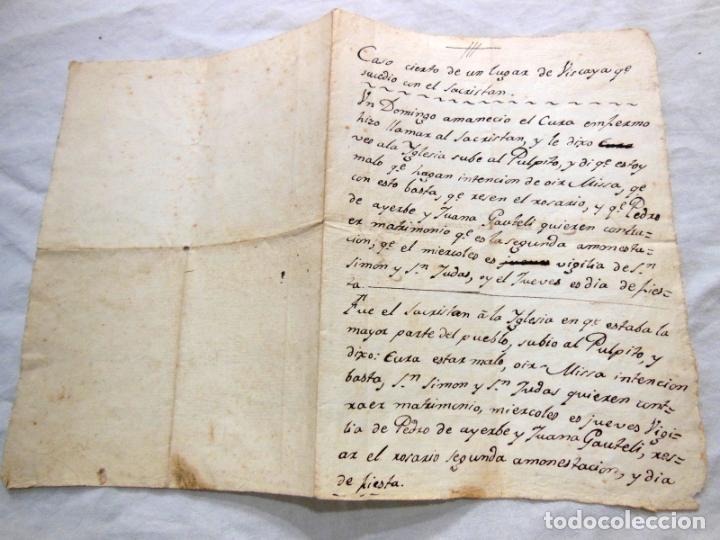 Caso cierto de un lugar de Viscaya qe
sucedio con el Sacristan.
Vn Domingo amanecio el Cura emfermo
hizo llamar al Sacristan, y le dixo Cura
ves ala Yglesia sube al Pulpito, y di qe estoy
malo qe hagan intencion de oir Missa, qe
con esto basta, qe resen el rosario, y qe Pedro
de ayerbe y Juana Gauteli quieren contra-
er matrimonio qe es la segunda amonesta-
cion, qe el miercoles es jueves vigilia de Sn
Simon y Sn Judas, y el Jueves es dia de fies-
ta.
Fue el Sacristan â la Yglesia en qe estaba la
mayor parte del pueblo, subio al Pulpito, y
dixo: Cura estar malo, oir Missa intencion
basta, Sn Simon y Sn Judas quieren cont-
raer matrimonio, miercoles es jueves Vigi-
lia de Pedro de ayerbe y Juana Gauteli, res-
ar el rosario segunda amonestacion, y dia
de fiesta.
todocoleccion.net